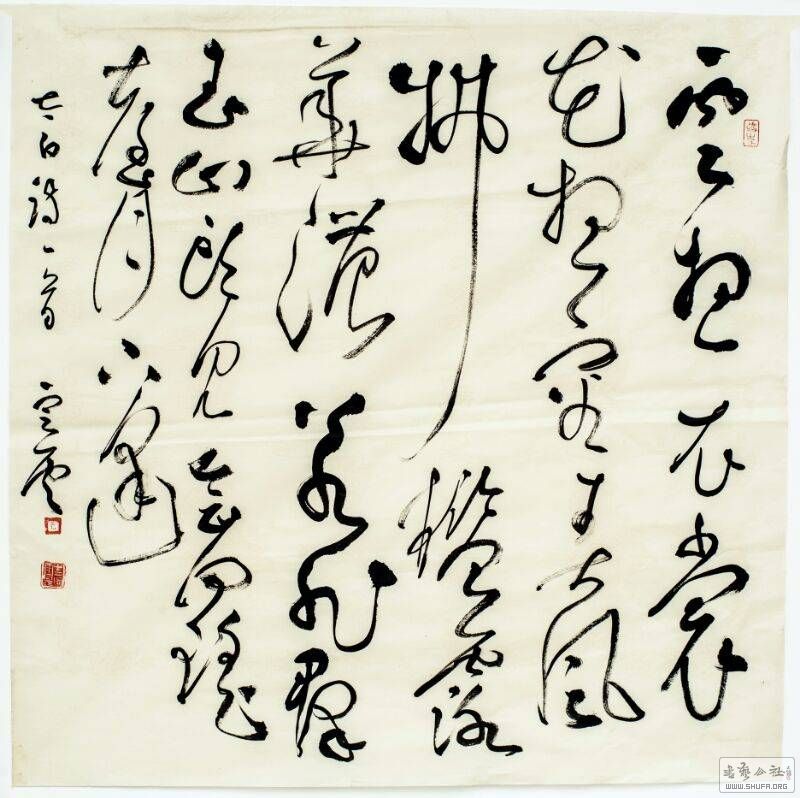 雲想衣裳
花想容春風
拂檻露
華濃若非群
玉山頭見會向瑤
臺月下逢
太白詩一首
書藝公社
WWW.SHUFA.ORG